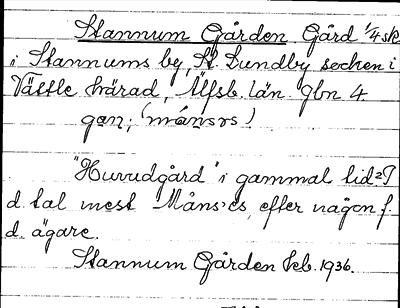 Stannum Gården Gård 1/4 sk
i Stannums by, St. Lundby socken i
Vättle härad, Älfsb. län. Gbn 4.
gən; (månsəs)
"Huvudgård" i gammal tid? I
d. tal mest Måns:es, efter någon f.
d. ägare.
Stannum Gården Feb. 1936.